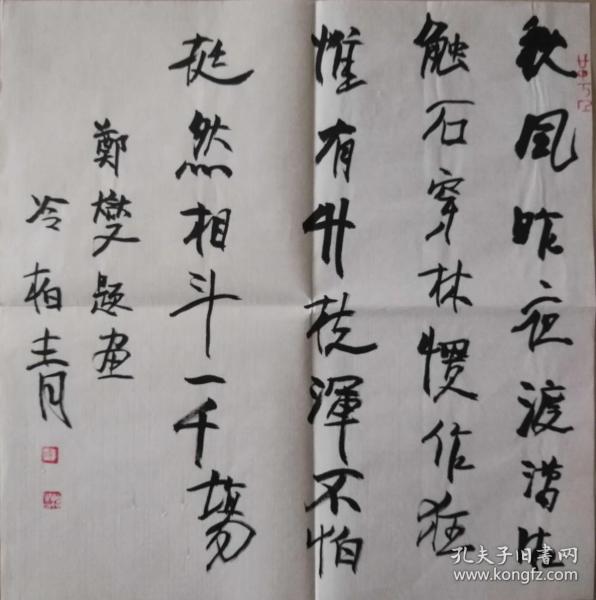 秋風昨夜渡瀟湘
觸石穿林慣作狂
惟有竹枝渾不怕
挺然相斗一千場
鄭燮題画
冷柏青
孔夫子旧书网
www.kongfz.com